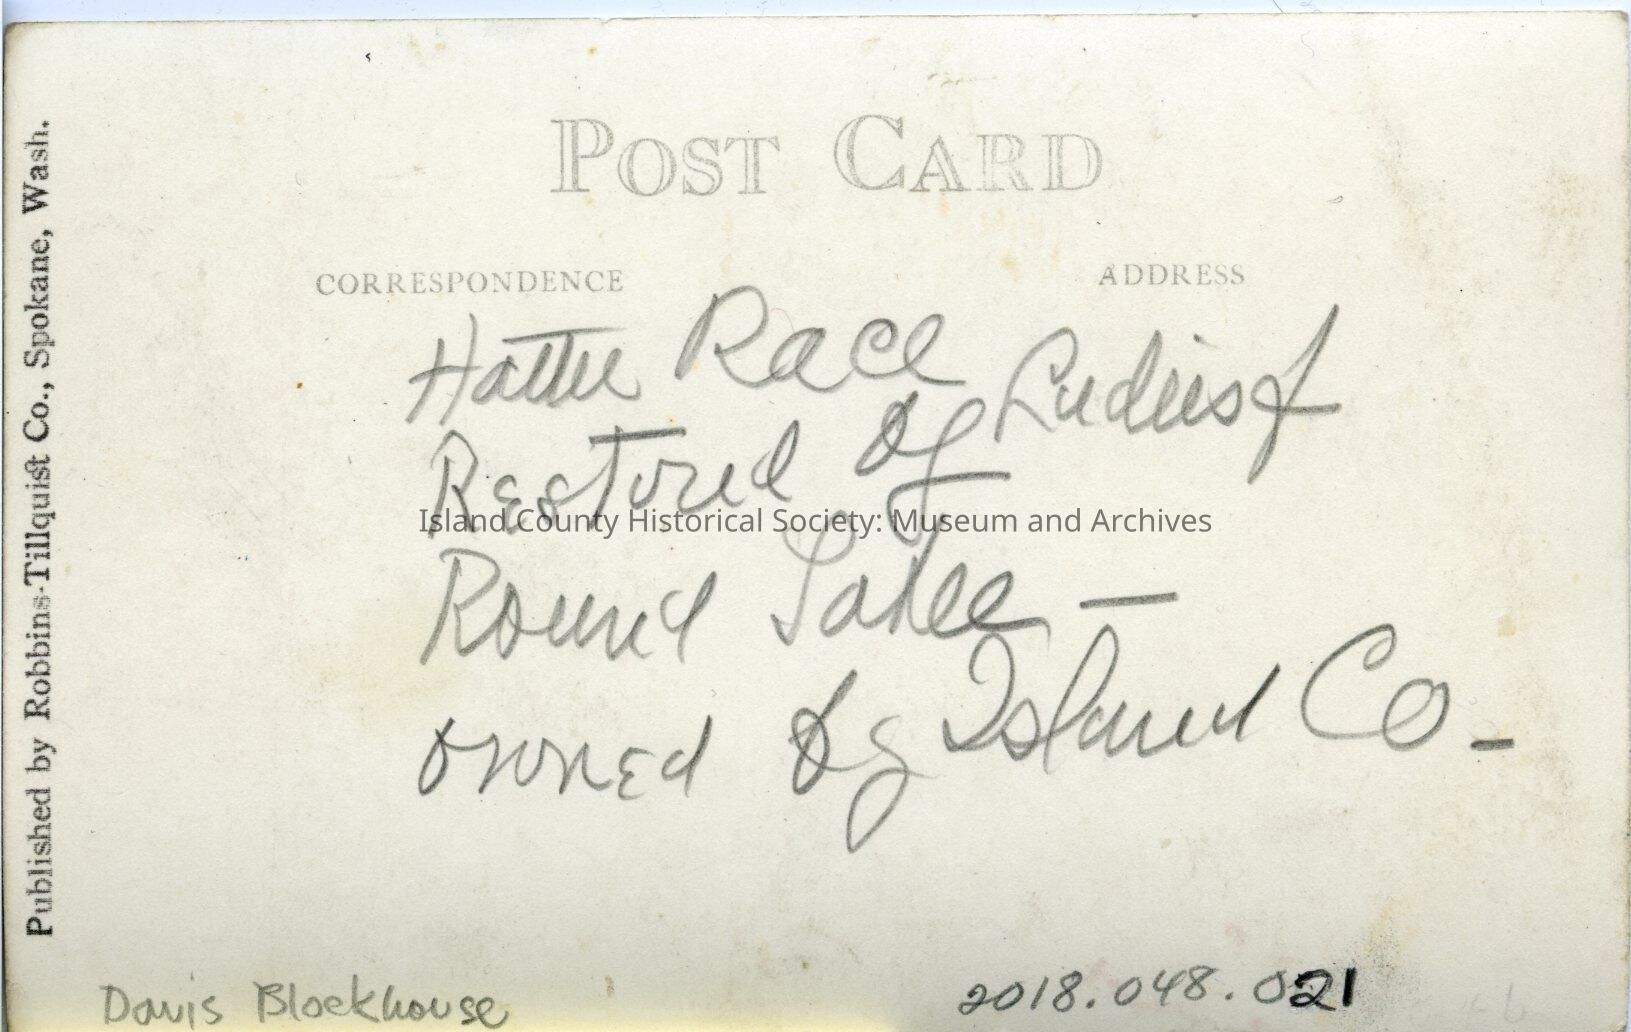 POST CARD
CORRESPONDENCE
ADDRESS
Hattie Race
Restored by Ladies of
Round Table —
owned by Island Co -
Island County Historical Society: Museum and Archives
Published by Robbins-Tillquist Co., Spokane, Wash.
Davis Blockhouse
2018.048.021